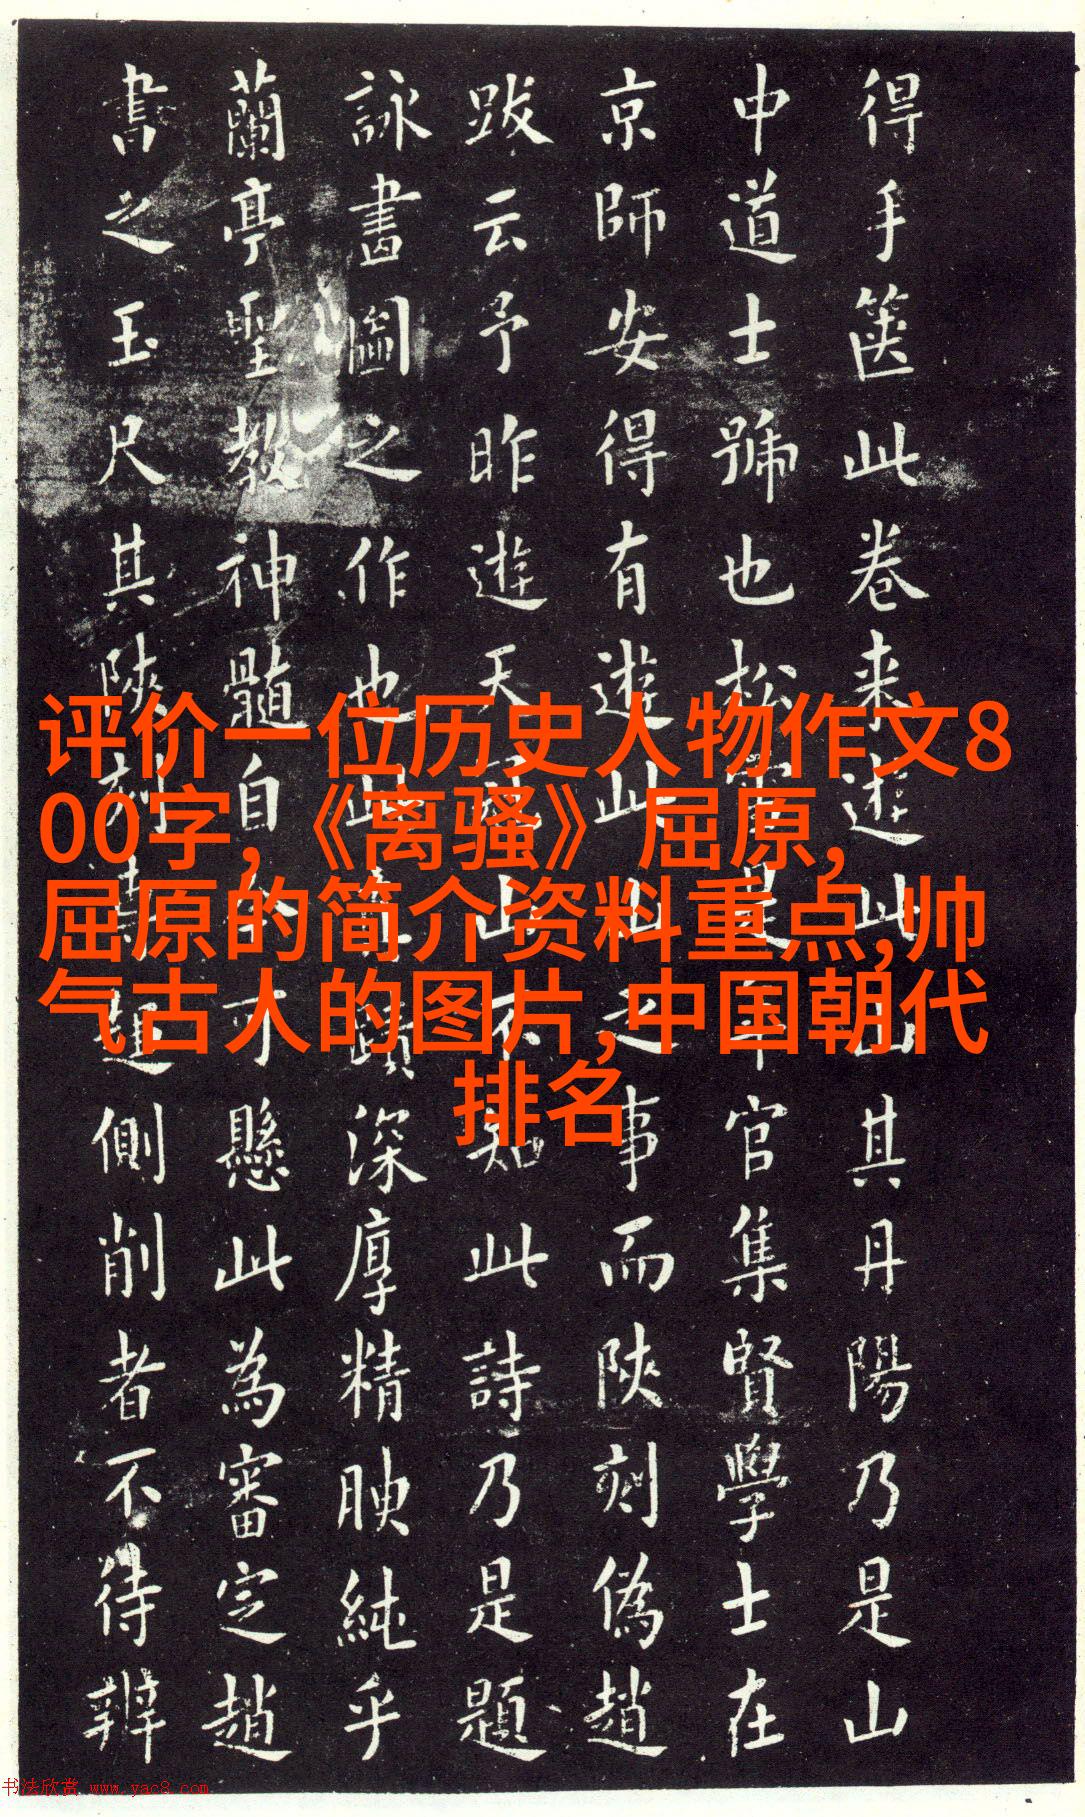 评价一位历史人物作文8
00字,《离骚》屈原,
屈原的简介资料重点,帅
气古人的图片,中国朝代
排名
得手篋此卷来遊此山其丹陽乃是山
中道士號也松雪是年官集賢學士在
京師安得有遊此山之事而陕刻偽趙
跋云予昨遊天冠山不知此詩乃是題
詠畵圖之作也此真蹟深厚精腴純乎
蘭亭聖教神髓自可懸此為審定趙
書之玉尺其陕刻側削者不待辨
书法欣赏 www.yac8.com